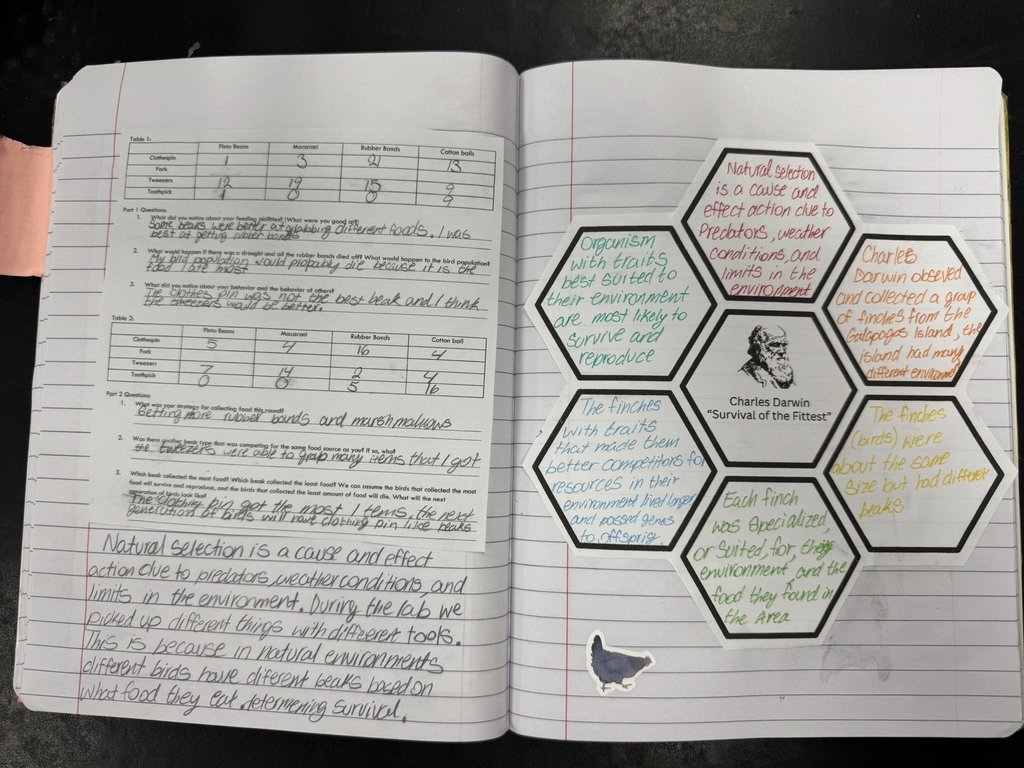 Table 1:
Pinto Beans Macaroni Rubber Bands Cotton balls
Clothespin 1 3 21 13
Fork
Tweezers 12 19 15 9
Toothpick 1 0 0 9
Part 1 Questions:
1. What did you notice about your feeding abilities? (What were you good at?)
Some beaks were better at grabbing different foods. I was
best at getting rubber bands
2. What would happen if there was a drought and all the rubber bands died off? What would happen to the bird population?
My bird population would probably die because it is the
food I ate most
3. What did you notice about your behavior and the behavior of others?
The clothes pin was not the best beak and I think
the tweezers would be better.
Table 2:
Pinto Beans Macaroni Rubber Bands Cotton ball
Clothespin 5 4 16 4
Fork
Tweezers 7 14 2 4
Toothpick 0 0 5 6
Part 2 Questions:
1. What was your strategy for collecting food this round?
Getting more rubber bands and marshmallows
2. Was there another beak type that was competing for the same food source as you? If so, who?
the tweezers were able to grap many items that I got
3. Which beak collected the most food? Which beak collected the least food? We can assume the birds that collected the most
food will survive and reproduce, and the birds that collected the least amount of food will die. What will the next
generation of birds look like?
The clothing pin got the most items, the next
generation of birds will have clothing pin like beaks
Natural selection is a cause and effect
action due to predators, weather conditions, and
limits in the environment. During the lab we
picked up different things with different tools.
This is because in natural environments
different birds have diferent beaks based on
what food they eat, determening survival.
Natural selection
is a cause and
effect action due to
Predators, weather
conditions, and
limits in the
environment
Organism
with traits
best suited to
their environment
are most likely to
survive and
reproduce
Charles
Darwin obseved
and collected a group
of finches from the
Galopogos Island, the
island had many
different environmets
Charles Darwin
"Survival of the Fittest"
The finches
with traits
that made them
better competitors for
resources in their
environment lived longer
and passed genes
to offsprig.
The finches
(birds) were
about the same
size but had different
beaks
Each finch
was specialized,
or suited, for, their
environment and the
food they found in
the Area